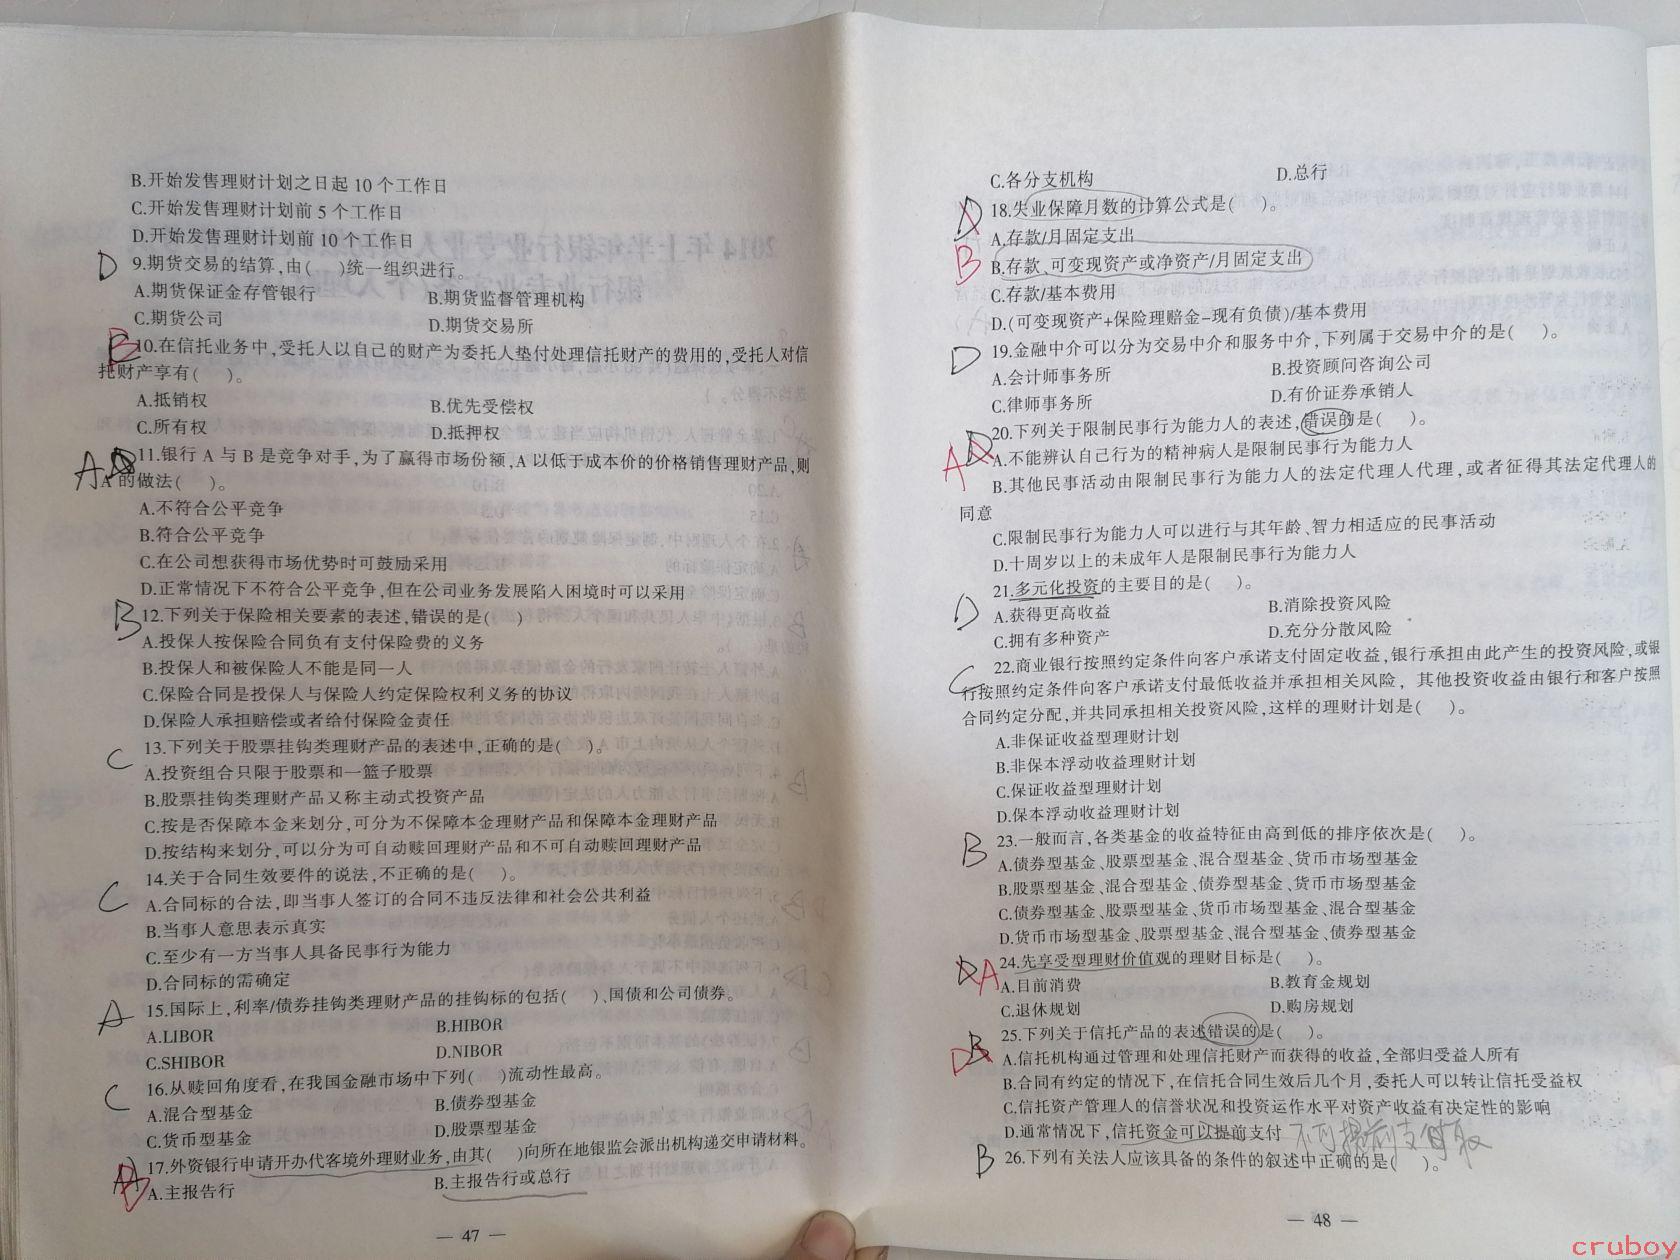 B.开始发售理财计划之日起 10 个工作日
C.开始发售理财计划前 5 个工作日
D.开始发售理财计划前 10 个工作日
D 9.期货交易的结算,由(    )统一组织进行。
A.期货保证金存管银行 B.期货监督管理机构
C.期货公司 D.期货交易所
B 10.在信托业务中,受托人以自己的财产为委托人垫付处理信托财产的费用的,受托人对信
托财产享有(    )。
A.抵销权 B.优先受偿权
C.所有权 D.抵押权
A 11.银行 A 与 B 是竞争对手,为了赢得市场份额,A 以低于成本价的价格销售理财产品,则
A 的做法(    )。
A.不符合公平竞争
B.符合公平竞争
C.在公司想获得市场优势时可鼓励采用
D.正常情况下不符合公平竞争,但在公司业务发展陷入困境时可以采用
B 12.下列关于保险相关要素的表述,错误的是(    )
A.投保人按保险合同负有支付保险费的义务
B.投保人和被保险人不能是同一人
C.保险合同是投保人与保险人约定保险权利义务的协议
D.保险人承担赔偿或者给付保险金责任
C 13.下列关于股票挂钩类理财产品的表述中,正确的是(    )。
A.投资组合只限于股票和一篮子股票
B.股票挂钩类理财产品又称主动式投资产品
C.按是否保障本金来划分,可分为不保障本金理财产品和保障本金理财产品
D.按结构来划分,可以分为可自动赎回理财产品和不可自动赎回理财产品
C 14.关于合同生效要件的说法,不正确的是(    )。
A.合同标的合法,即当事人签订的合同不违反法律和社会公共利益
B.当事人意思表示真实
C.至少有一方当事人具备民事行为能力
D.合同标的需确定
A 15.国际上,利率/债券挂钩类理财产品的挂钩标的包括(    )、国债和公司债券。
A.LIBOR B.HIBOR
C.SHIBOR D.NIBOR
C 16.从赎回角度看,在我国金融市场中下列(    )流动性最高。
A.混合型基金 B.债券型基金
C.货币型基金 D.股票型基金
A B 17.外资银行申请开办代客境外理财业务,由其(    )向所在地银监会派出机构递交申请材料。
A.主报告行 B.主报告行或总行
— 47 —
C.各分支机构 D.总行
D 18.失业保障月数的计算公式是(    )。
A.存款/月固定支出
B B.存款、可变现资产或净资产/月固定支出
C.存款/基本费用
D.(可变现资产+保险理赔金-现有负债)/基本费用
D 19.金融中介可以分为交易中介和服务中介,下列属于交易中介的是(    )。
A.会计师事务所 B.投资顾问咨询公司
C.律师事务所 D.有价证券承销人
A D 20.下列关于限制民事行为能力人的表述,错误的是(    )。
A.不能辨认自己行为的精神病人是限制民事行为能力人
B.其他民事活动由限制民事行为能力人的法定代理人代理,或者征得其法定代理人的
同意
C.限制民事行为能力人可以进行与其年龄、智力相适应的民事活动
D.十周岁以上的未成年人是限制民事行为能力人
D 21.多元化投资的主要目的是(    )。
A.获得更高收益 B.消除投资风险
C.拥有多种资产 D.充分分散风险
C 22.商业银行按照约定条件向客户承诺支付固定收益,银行承担由此产生的投资风险,或银
行按照约定条件向客户承诺支付最低收益并承担相关风险, 其他投资收益由银行和客户按照
合同约定分配,并共同承担相关投资风险,这样的理财计划是(    )。
A.非保证收益型理财计划
B.非保本浮动收益理财计划
C.保证收益型理财计划
D.保本浮动收益理财计划
B 23.一般而言,各类基金的收益特征由高到低的排序依次是(    )。
A.债券型基金、股票型基金、混合型基金、货币市场型基金
B.股票型基金、混合型基金、债券型基金、货币市场型基金
C.债券型基金、股票型基金、货币市场型基金、混合型基金
D.货币市场型基金、股票型基金、混合型基金、债券型基金
A 24.先享受型理财价值观的理财目标是(    )。
A.目前消费 B.教育金规划
C.退休规划 D.购房规划
D B 25.下列关于信托产品的表述错误的是(    )。
A.信托机构通过管理和处理信托财产而获得的收益,全部归受益人所有
B.合同有约定的情况下,在信托合同生效后几个月,委托人可以转让信托受益权
C.信托资产管理人的信誉状况和投资运作水平对资产收益有决定性的影响
D.通常情况下,信托资金可以提前支付 不可提前支取
B 26.下列有关法人应该具备的条件的叙述中正确的是(    )。
— 48 —
cruboy